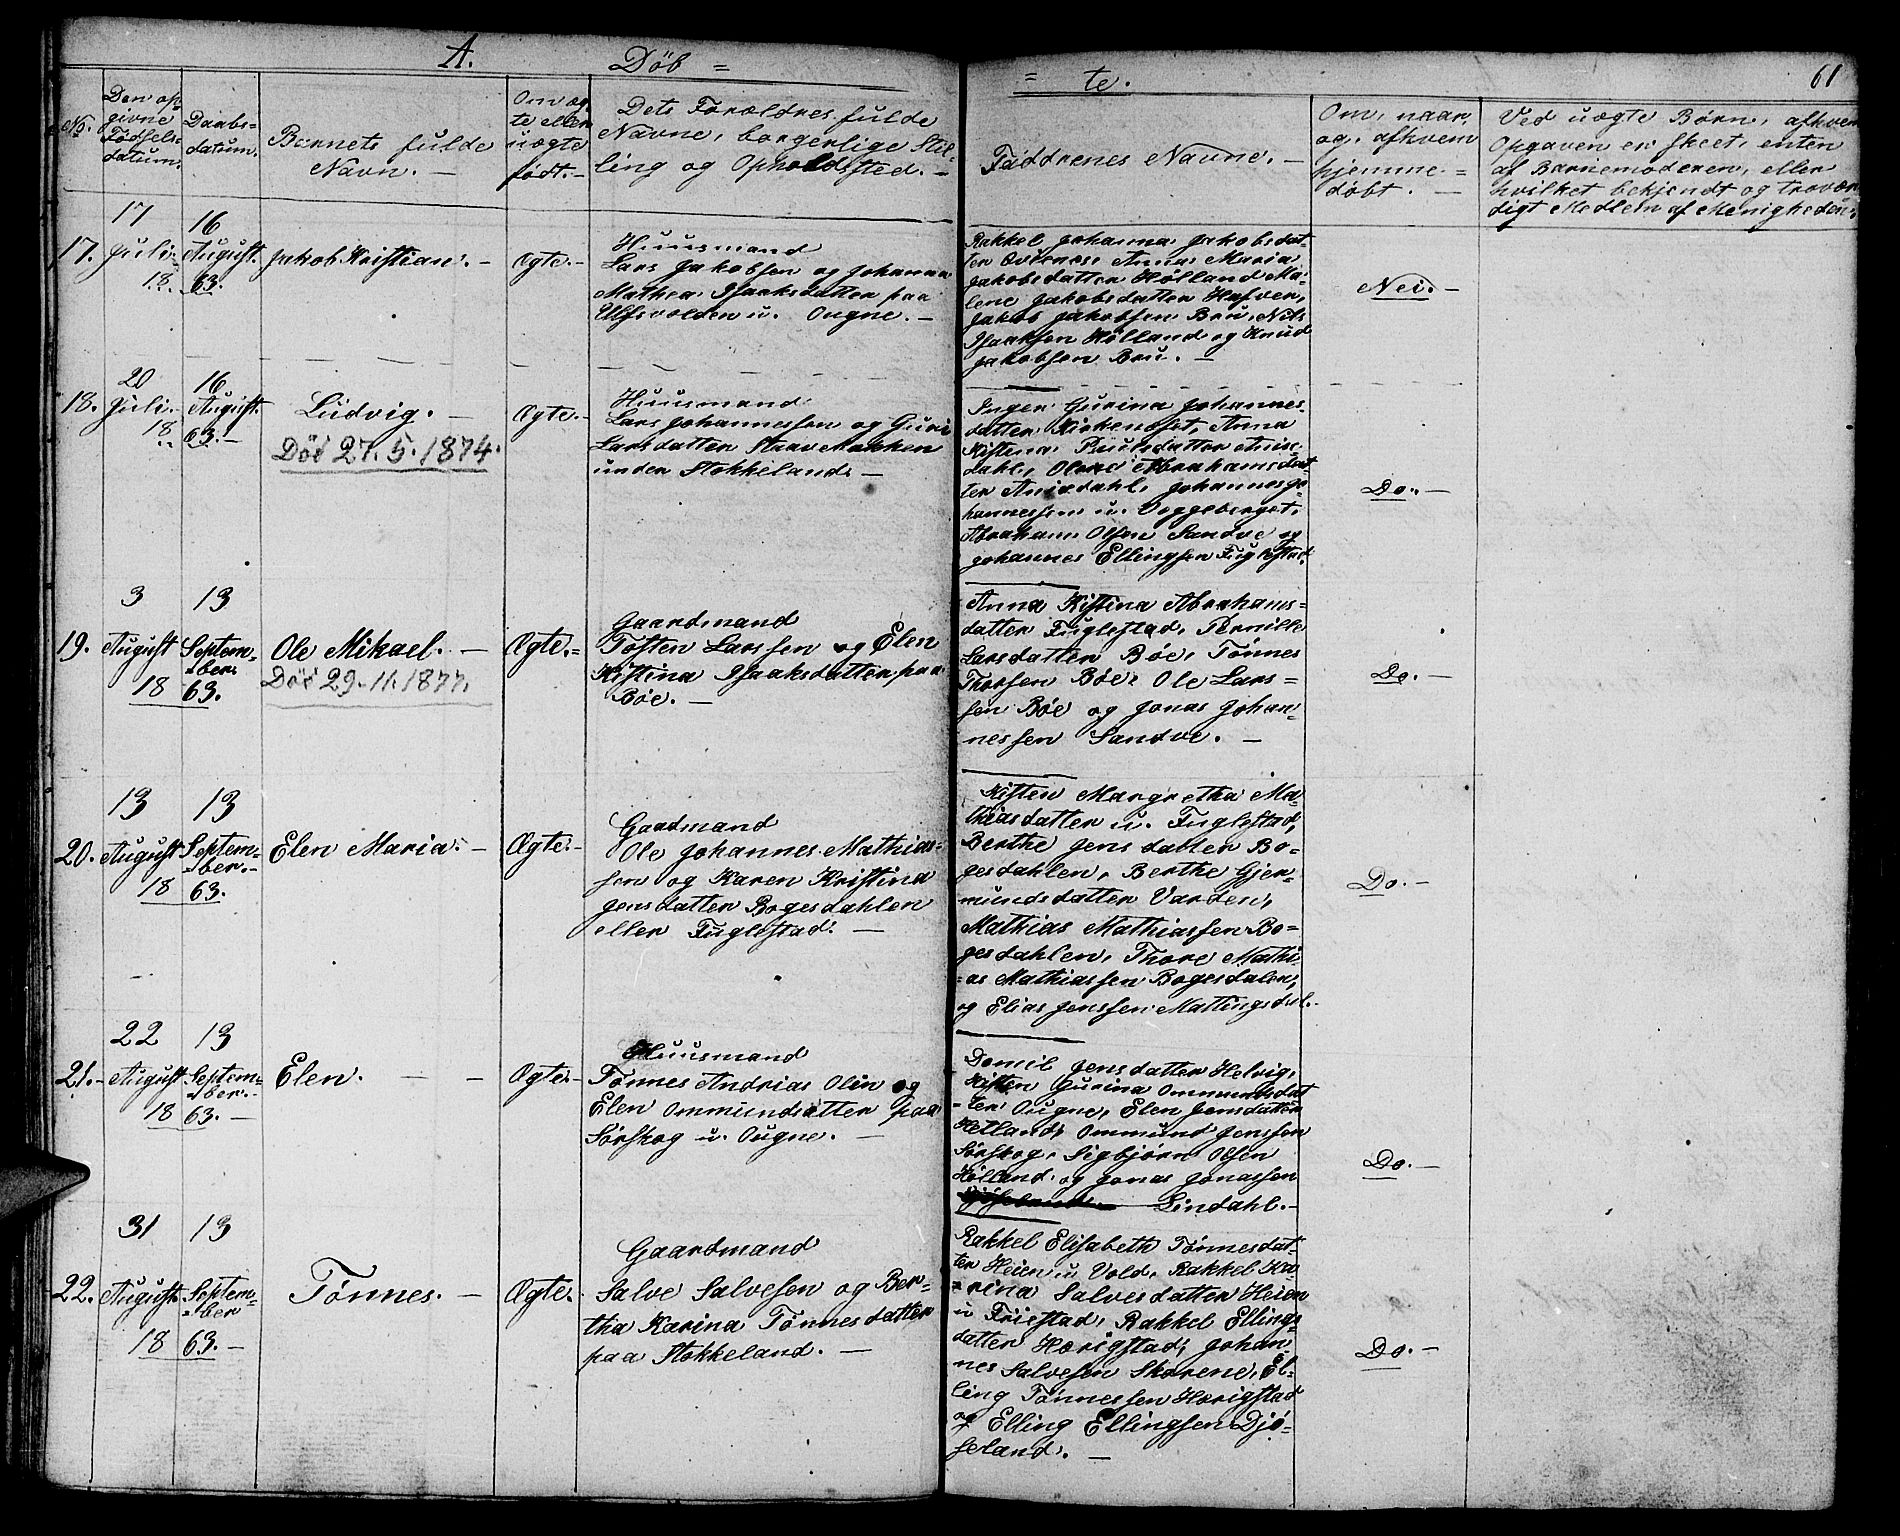 A. Döb =
= te. 61
No. Den opgivne Fødselsdatum. Daabsdatum. Barnets fulde Navn. — Om ægte eller uægte født. — Dets Forældres fulde Navne, borgerlige Stilling og Opholdssted. —
Faddrenes Navne. — Om, naar, og afhvem hjemme=døbt. — Ved uægte Børn, afhvem Opgaven er skeet, enten af Barnemoderen, eller hvilket bekjendt og troværdigt Medlem af Menigheden.
17. 17 Juli 18 16 August 63. Jakob Kristian. — Ægte. —
Huusmand
Lars Jakobsen og Johanna
Mathea Isaaksdatter paa
u. Ougne. —
Rakkel Johanna Jakobsdat-
ter Anna Maria
Jakobsdatter Hølland Ma-
lene Jakobsdatter
Jakob Jakobsen Bru, Nils
Isaaksen Hølland og Knud
Jakobsen Bru. —
Nei. —
18. 20 Juli 18 16 August 63. — Ludvig. — Ægte. —
Død 27.5.1874.
Huusmand
Lars Johannessen og Guri
Larsdatter
under Stokkeland. —
Inger Gurina Johannes-
datter Anna
Kistina
Abrahamsdat-
ter Johannes Jo-
hannessen u.
Abraham Olsen Sandve og
Johannes Ellingsen Fuglestad.
Do. —
19. 3 August 18 13 September 63. Ole Mikael. — Ægte. =
Død 29.11.1877.
Gaardmand
Tosten Larssen og Elen
Kistina Isaaksdatter paa
Bøe. —
Anna Kistina Abrahams=
datter Fuglestad, Pernille
Larsdatter Bøe, Tønnes
Thorsen Bøe, Ole Lars=
sen Bøe og Jonas Johan-
nessen Sandve. —
Do. —
20. 13 August 18 13 September 63. Elen Maria. — Ægte. —
Gaardmand
Ole Johannes Mathias-
sen og Karen Kristina
Jensdatter Bogesdahlen
eller Fuglestad. —
Kisten Margretha Ma-
thiasdatter u. Fuglestad,
Berthe Jensdatter Bo=
gesdahlen, Berthe Gjer-
mundsdatter Varden,
Mathias Mathiassen Bo=
gesdahlen, Thore Mathi-
as Mathiassen Bogesdalen,
og Elias Jenssen Mattingsdal. —
Do. —
21. 22 August 18 13 September 63. — Elen. — — Ægte —
Huusmand
Tønnes Andrias Olsen og
Elen Ommundsdatter paa
Sørskog u. Ougne. —
Domil Jensdatter Helvig,
Kisten Gurina Ommundsdat
ter Ougne, Elen Jensdatter
Hetland, Ommund Jenssen
Sørskog, Sigbjørn Olsen
Hølland, og Jonas Jonassen
Lindahl. —
Do. —
22. 31 August 18 13 September 63. — Tønnes. — Ægte.
Gaardmand
Salve Salvesen og Ber-
tha Karina Tønnesdatter
paa Stokkeland. —
Rakkel Elisabeth Tønnesdat-
ter Heien u Vold, Rakkel Ka-
rina Salvesdatter Heien
u Rakkel Ellings-
datter Hærigstad, Johan-
nes Salvesen Skarene, El-
ling Tønnessen Hærigstad
og Elling Ellingsen Djø-
seland. —
Do. —